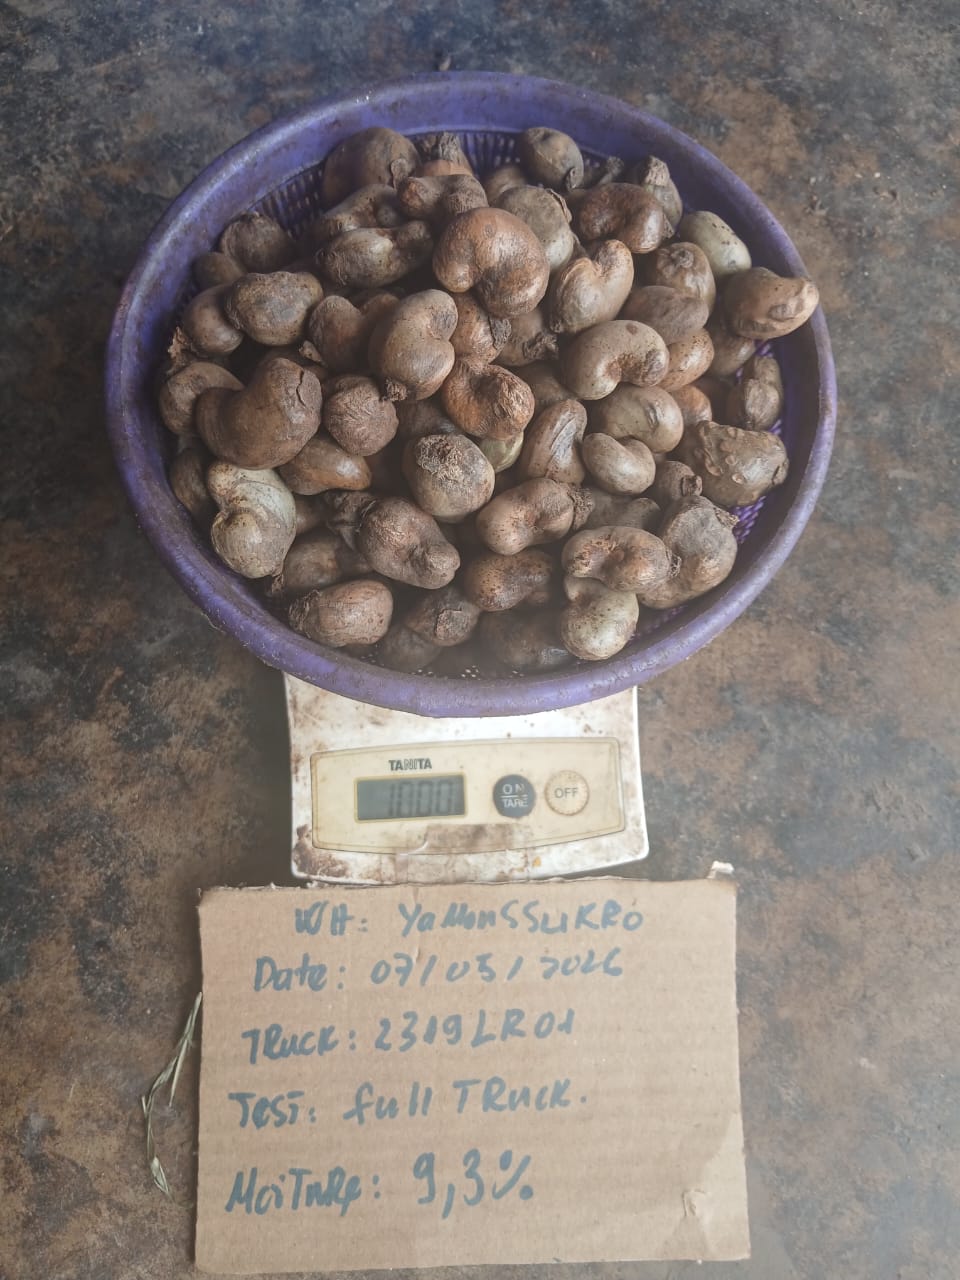 TANITA
1000
ON
TARE
OFF
WH: YaMonSSUKRo
Date: 07/05/2026
TRuck: 2319LR01
TEST: full TRuck.
MoiTuRe: 9,3%